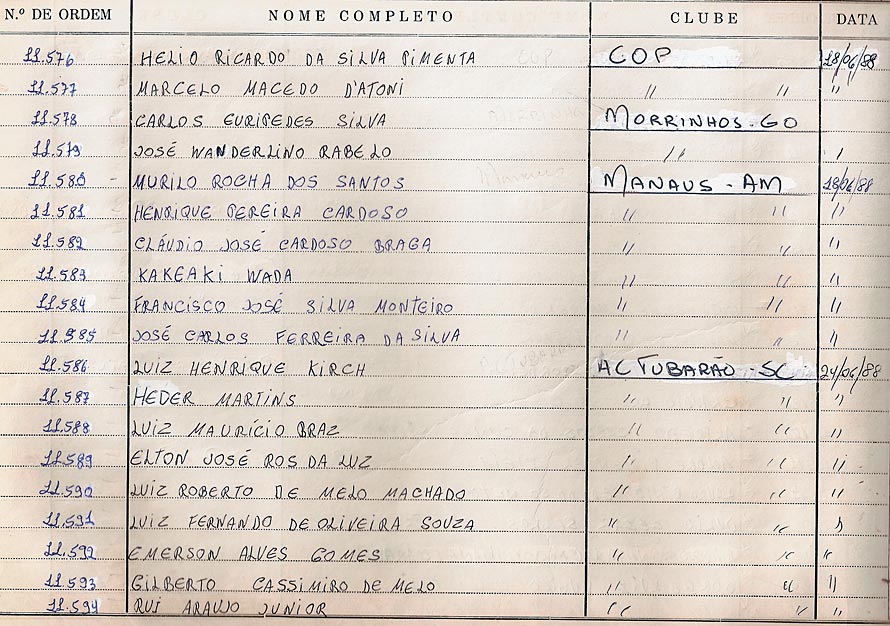 N.º DE ORDEM NOME COMPLETO CLUBE DATA
11.576 HELIO RICARDO DA SILVA PIMENTA COP 18/06/88
11.577 MARCELO MACEDO D'ATONI " " "
11.578 CARLOS EURIPEDES SILVA MORRINHOS-GO
11.579 JOSÉ WANDERLINO RABELO " "
11.580 - MURILO ROCHA DOS SANTOS MANAUS - AM 18/06/88
11.581 HENRIQUE PEREIRA CARDOSO " " "
11.582 CLÁUDIO JOSÉ CARDOSO BRAGA " " "
11.583 KAKEAKI WADA " " "
11.584 FRANCISCO JOSÉ SILVA MONTEIRO " " "
11.585 JOSÉ CARLOS FERREIRA DA SILVA " " "
11.586 LUIZ HENRIQUE KIRCH AC TUBARÃO - SC 24/06/88
11.587 HEDER MARTINS " " "
11.588 LUIZ MAURÍCIO BRAZ " " "
11.589 ELTON JOSÉ ROS DA LUZ " " "
11.590 LUIZ ROBERTO DE MELO MACHADO " " "
11.591 LUIZ FERNANDO DE OLIVEIRA SOUZA " " "
11.592 EMERSON ALVES GOMES " " "
11.593 GILBERTO CASSIMIRO DE MELO " " "
11.594 RUI ARAUJO JUNIOR " " "